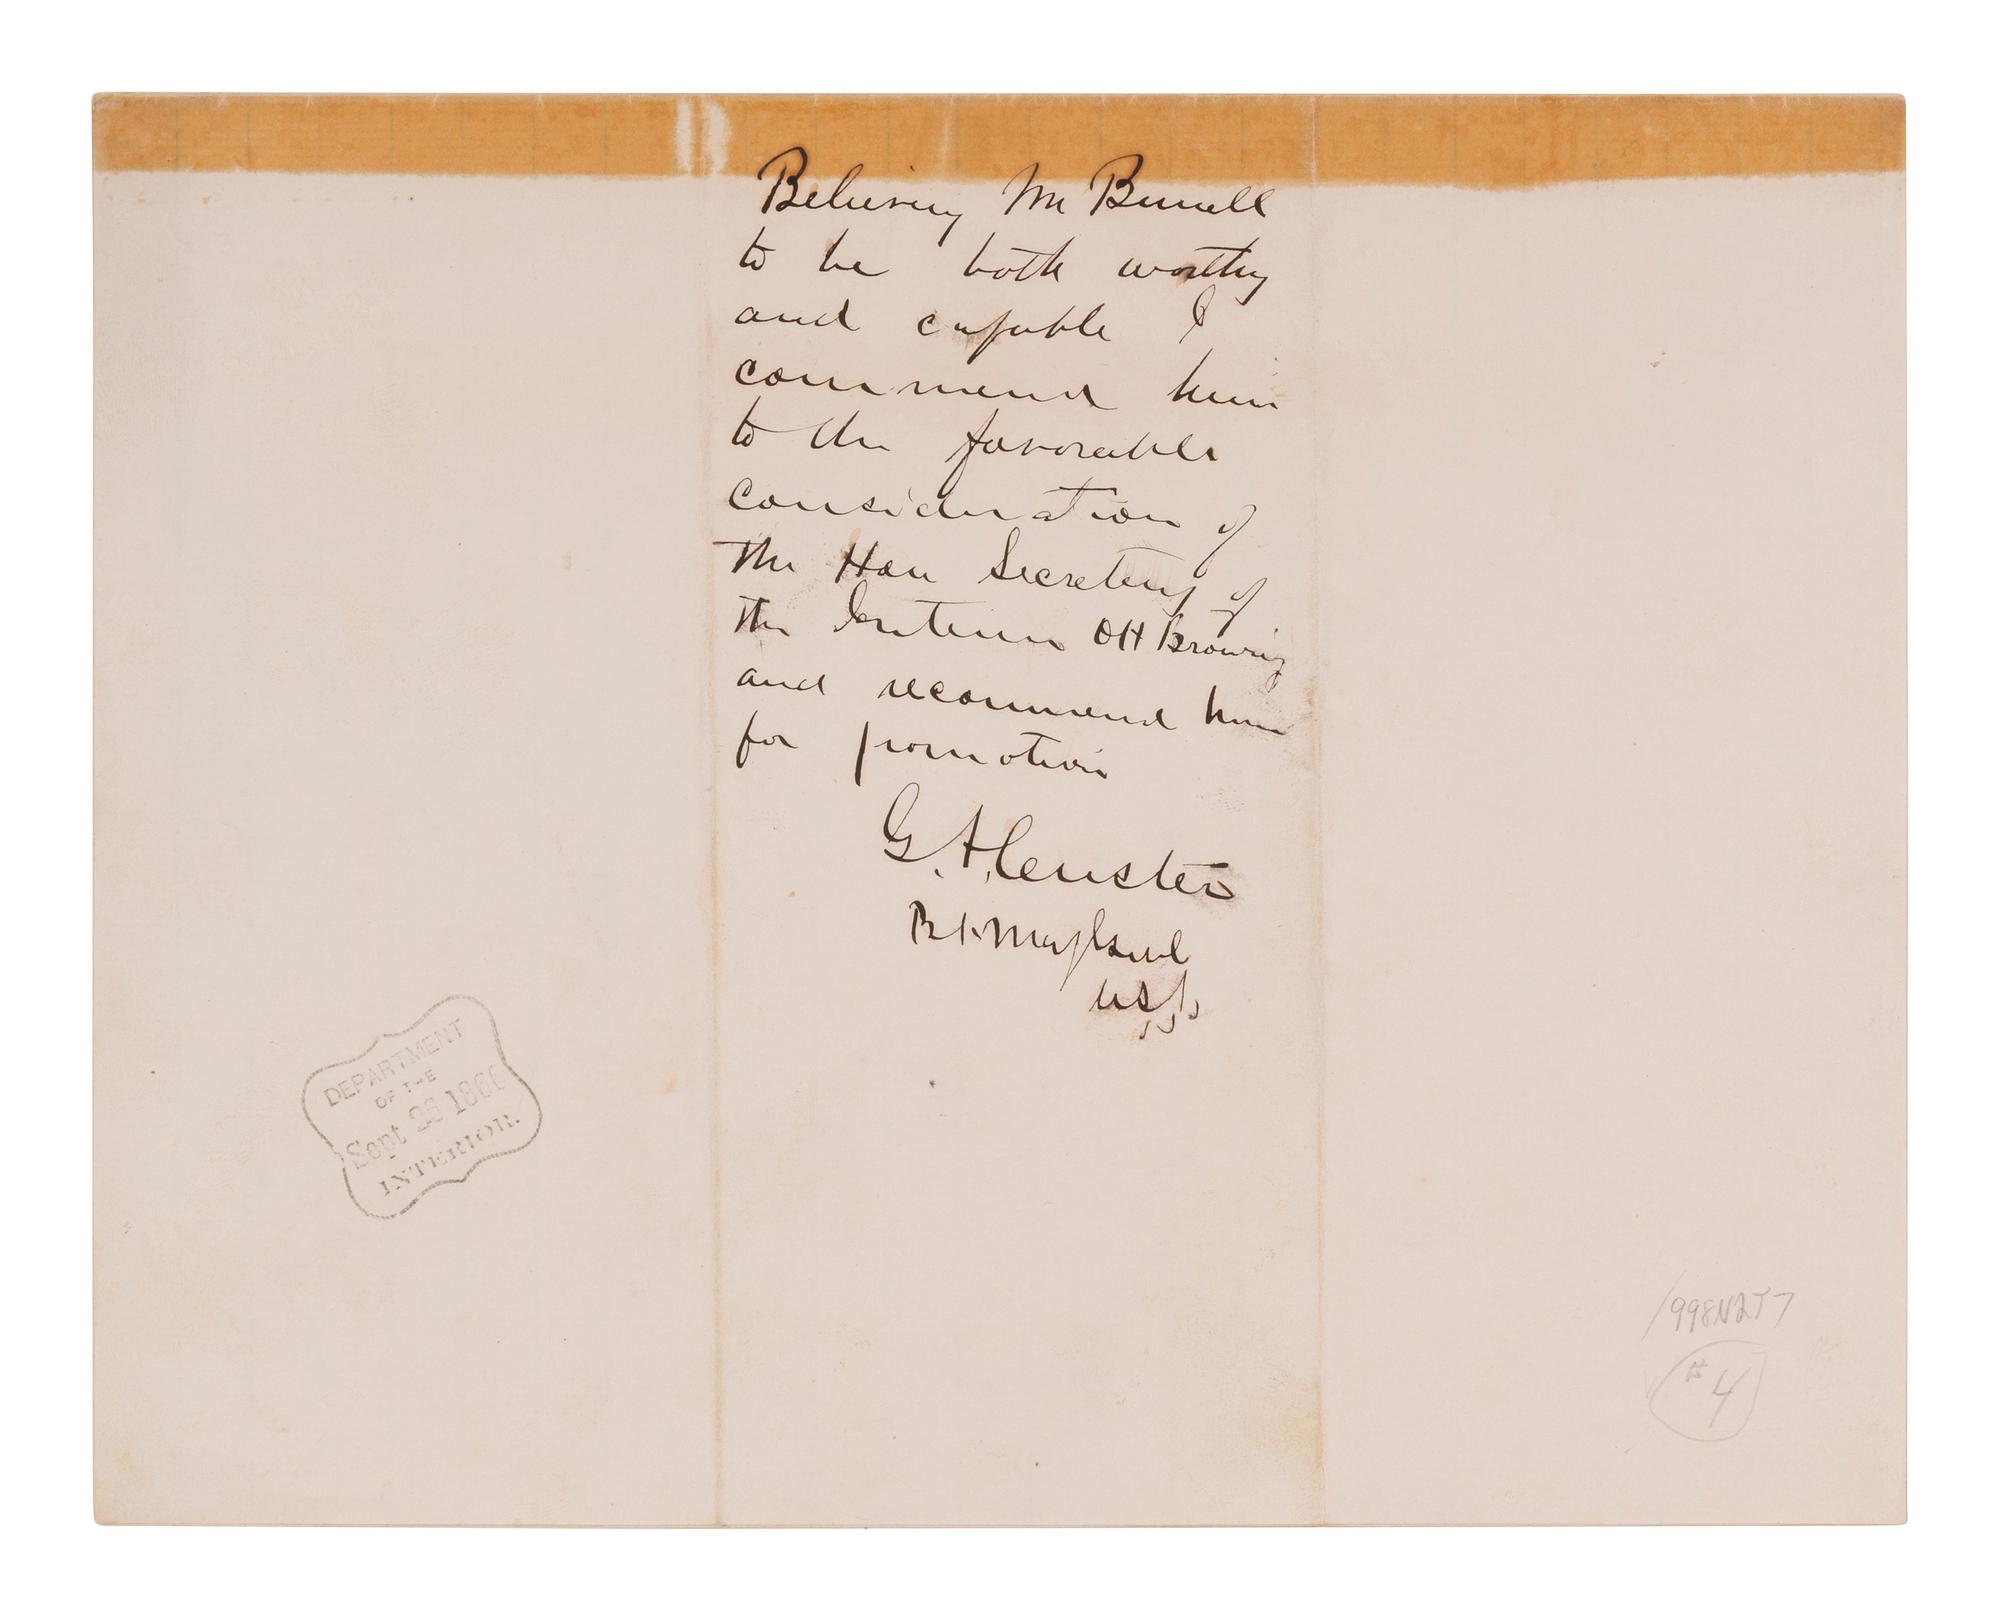 Believing Mr Bunell
to be both worthy
and capable I
commend him
to the favorable
consideration of
the Hon Secretary of
the Interior OH Browning
and recommend him
for promotion
G. A. Custer
Bt Maj Genl
USA
DEPARTMENT
OF THE
Sept 26 1866
INTERIOR.
1998N257
#4